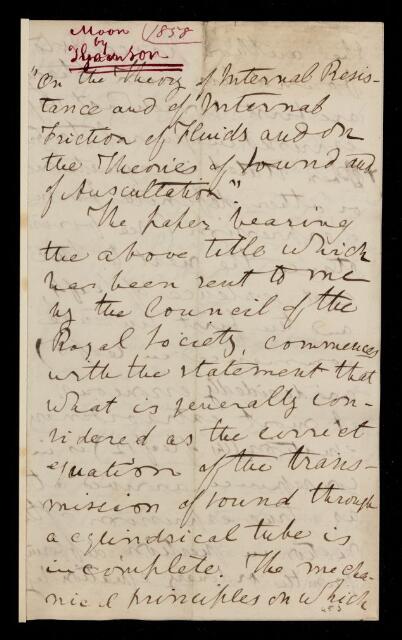 Moon 1858
by
Thomson
"On the Theory of Internal Resis-
tance and of Internal
Friction of Fluids and on
the Theories of Sound and
of Auscultation".
The paper bearing
the above title which
has been sent to me
by the Council of the
Royal Society, commences
with the statement that
what is generally con-
sidered as the correct
equation of the trans-
mission of sound through
a cylindrical tube is
incomplete. The mecha-
nical principles on which